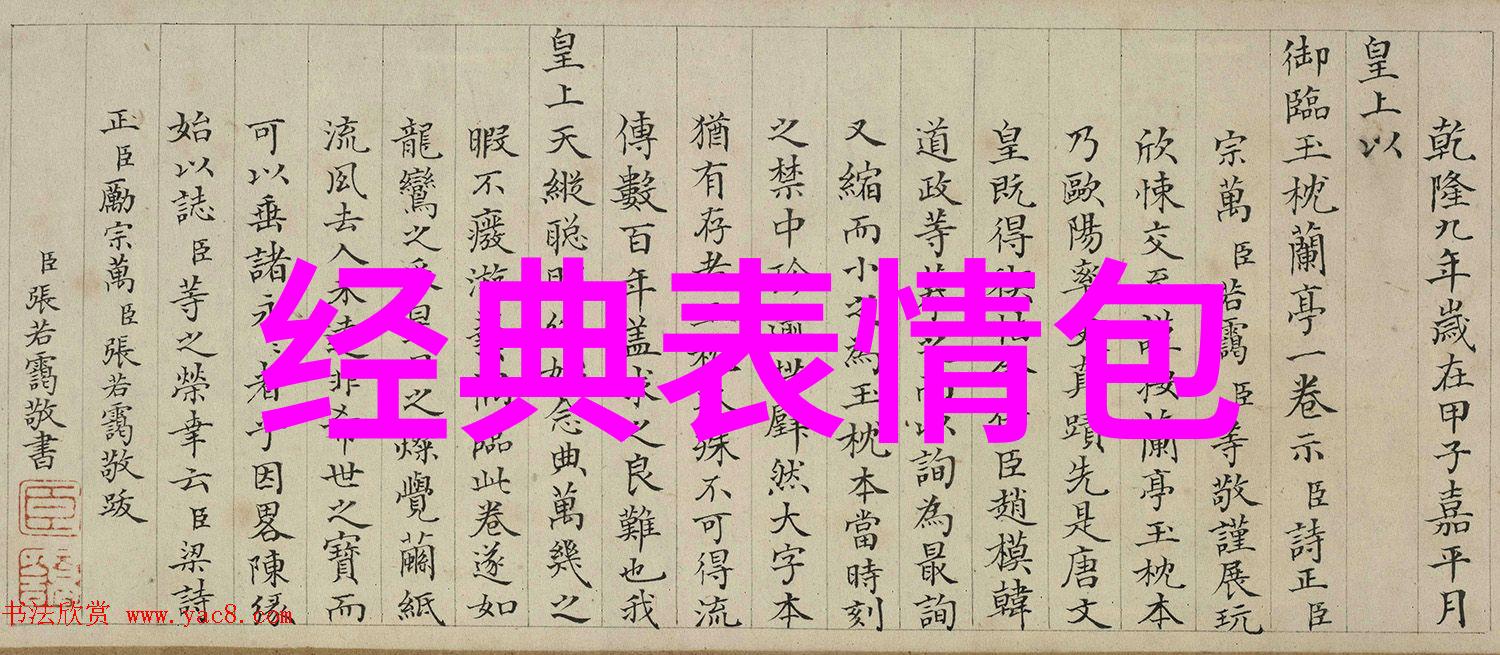 乾隆九年歲在甲子嘉平月
皇上以
御臨玉枕蘭亭一卷示臣詩正臣
宗萬臣若靄臣等敬謹展玩
欣悚交至
按蘭亭玉枕本
乃歐陽率更真蹟先是唐文
皇既得
臣趙模韓
道政等
詢為最詢
又縮而小之為玉枕本當時刻
之禁中
然大字本
猶有存者玉枕
殊不可得流
傳數百年蓋求之良難也我
皇上天縱聰明
念典萬幾之
暇不廢游藝
臨此卷遂如
龍鸞之
之燦覺繭紙
流風去人未遠
世之寶而
可以垂諸永
者乎因畧陳緣
始以誌臣等之榮幸云臣梁詩
正臣勵宗萬臣張若靄敬跋
臣張若靄敬書
臣
经典表情包
书法欣赏 www.yac8.com